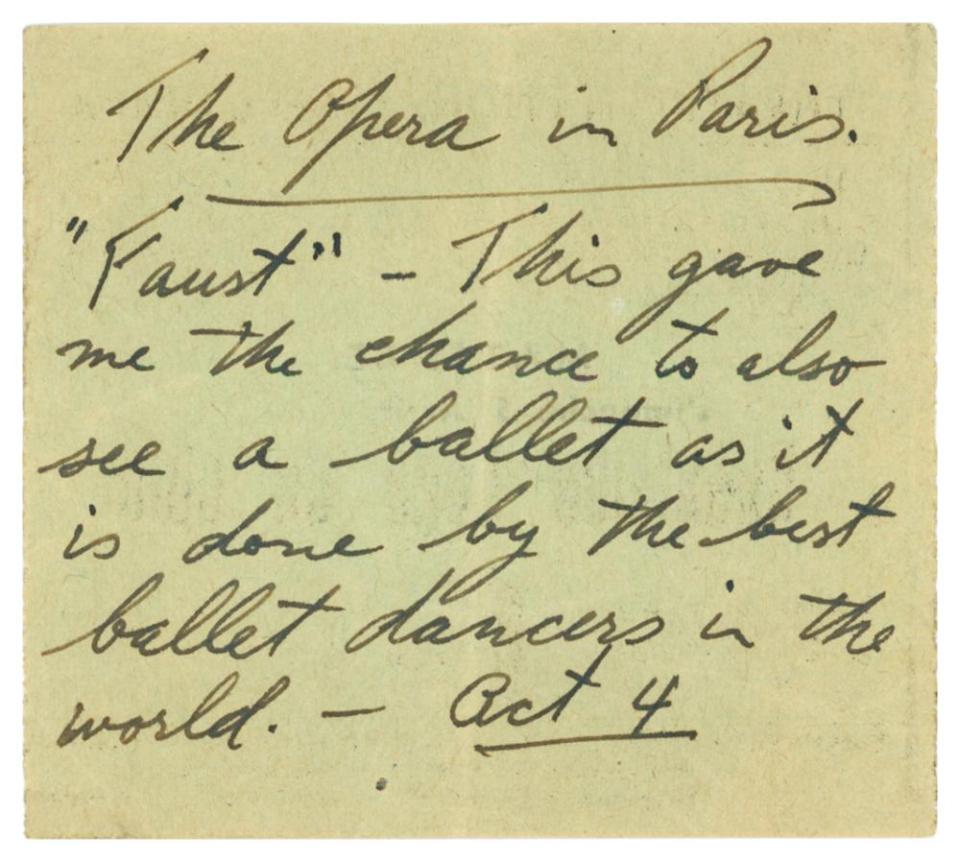 The Opera in Paris.
"Faust" - This gave
me the chance to also
see a ballet as it
is done by the best
ballet dancers in the
world. - Act 4